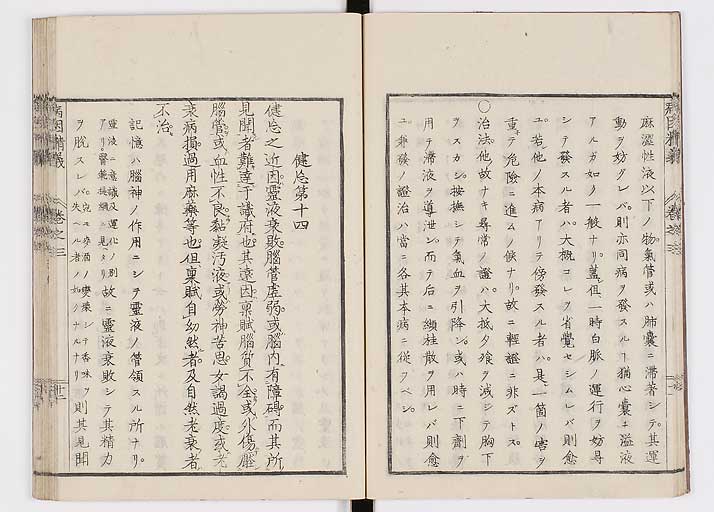 麻澀性液以下ノ物氣管或ハ肺囊ニ滯著シテ其運
動ヲ妨グレバ則亦同病ヲ發スルヿ猶心囊ニ溢液
アルガ如ノ一般ナリ蓋但一時白脈ノ運行ヲ妨碍
シテ發スル者ハ大概コレヲ省覺セシムレバ則愈
ユ若他ノ本病アリテ傍發スル者ハ是一箇ノ害ヲ
重テ危險ニ進ムノ候ナリ故ニ輕證ニ非ズトス
〇治法他故ナキ尋常ノ證ハ大抵夕飧ヲ減シテ胸下
ヲスカシ按撫シテ氣血ヲ引降シ或ハ時ニ下劑ヲ
用テ滯液ヲ導泄シ而テ后ニ纈桂散ヲ用レバ則愈
ユ兼發ノ證治ハ當ニ各其本病ニ從フベシ
健忘第十四
健忘之近因靈液衰敗腦管虛弱或腦内有障碍而其所
見聞者難達于識府也其遠因稟賦腦質不全或外傷壓
腦管或血性不良黏凝汚液或勞神苦思女謁過度或老
衰病損過用麻藥等也但稟賦自幼然者及自然老衰者
不治
記憶ハ腦神ノ作用ニシテ靈液ノ管領スル所ナリ
靈液ニ意識及運化ノ別
アリ醫範提綱ニ見タリ
故ニ靈液衰敗シテ其精力
ヲ脫スレバ宛モ芳酒ノ變壞シテ香味ヲ
失ヘル者ノ如クナルナリ
則其見聞
病因精義
卷之三